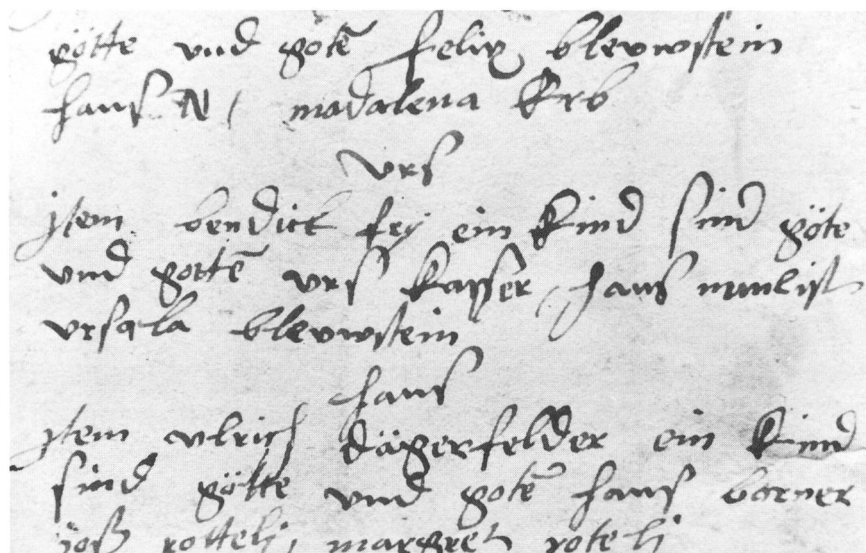 götte vnd gotē felix blevwstein
hans N / madalena Erb
vrs
jtem bendict fry ein kind sind göte
vnd gottē vrs kasser, hans
vrsula blevwstein
hans
jtem vlrich dägerfelder ein kind
sind götte vnd gotē hans borner
joß rottelj, margret rotelj